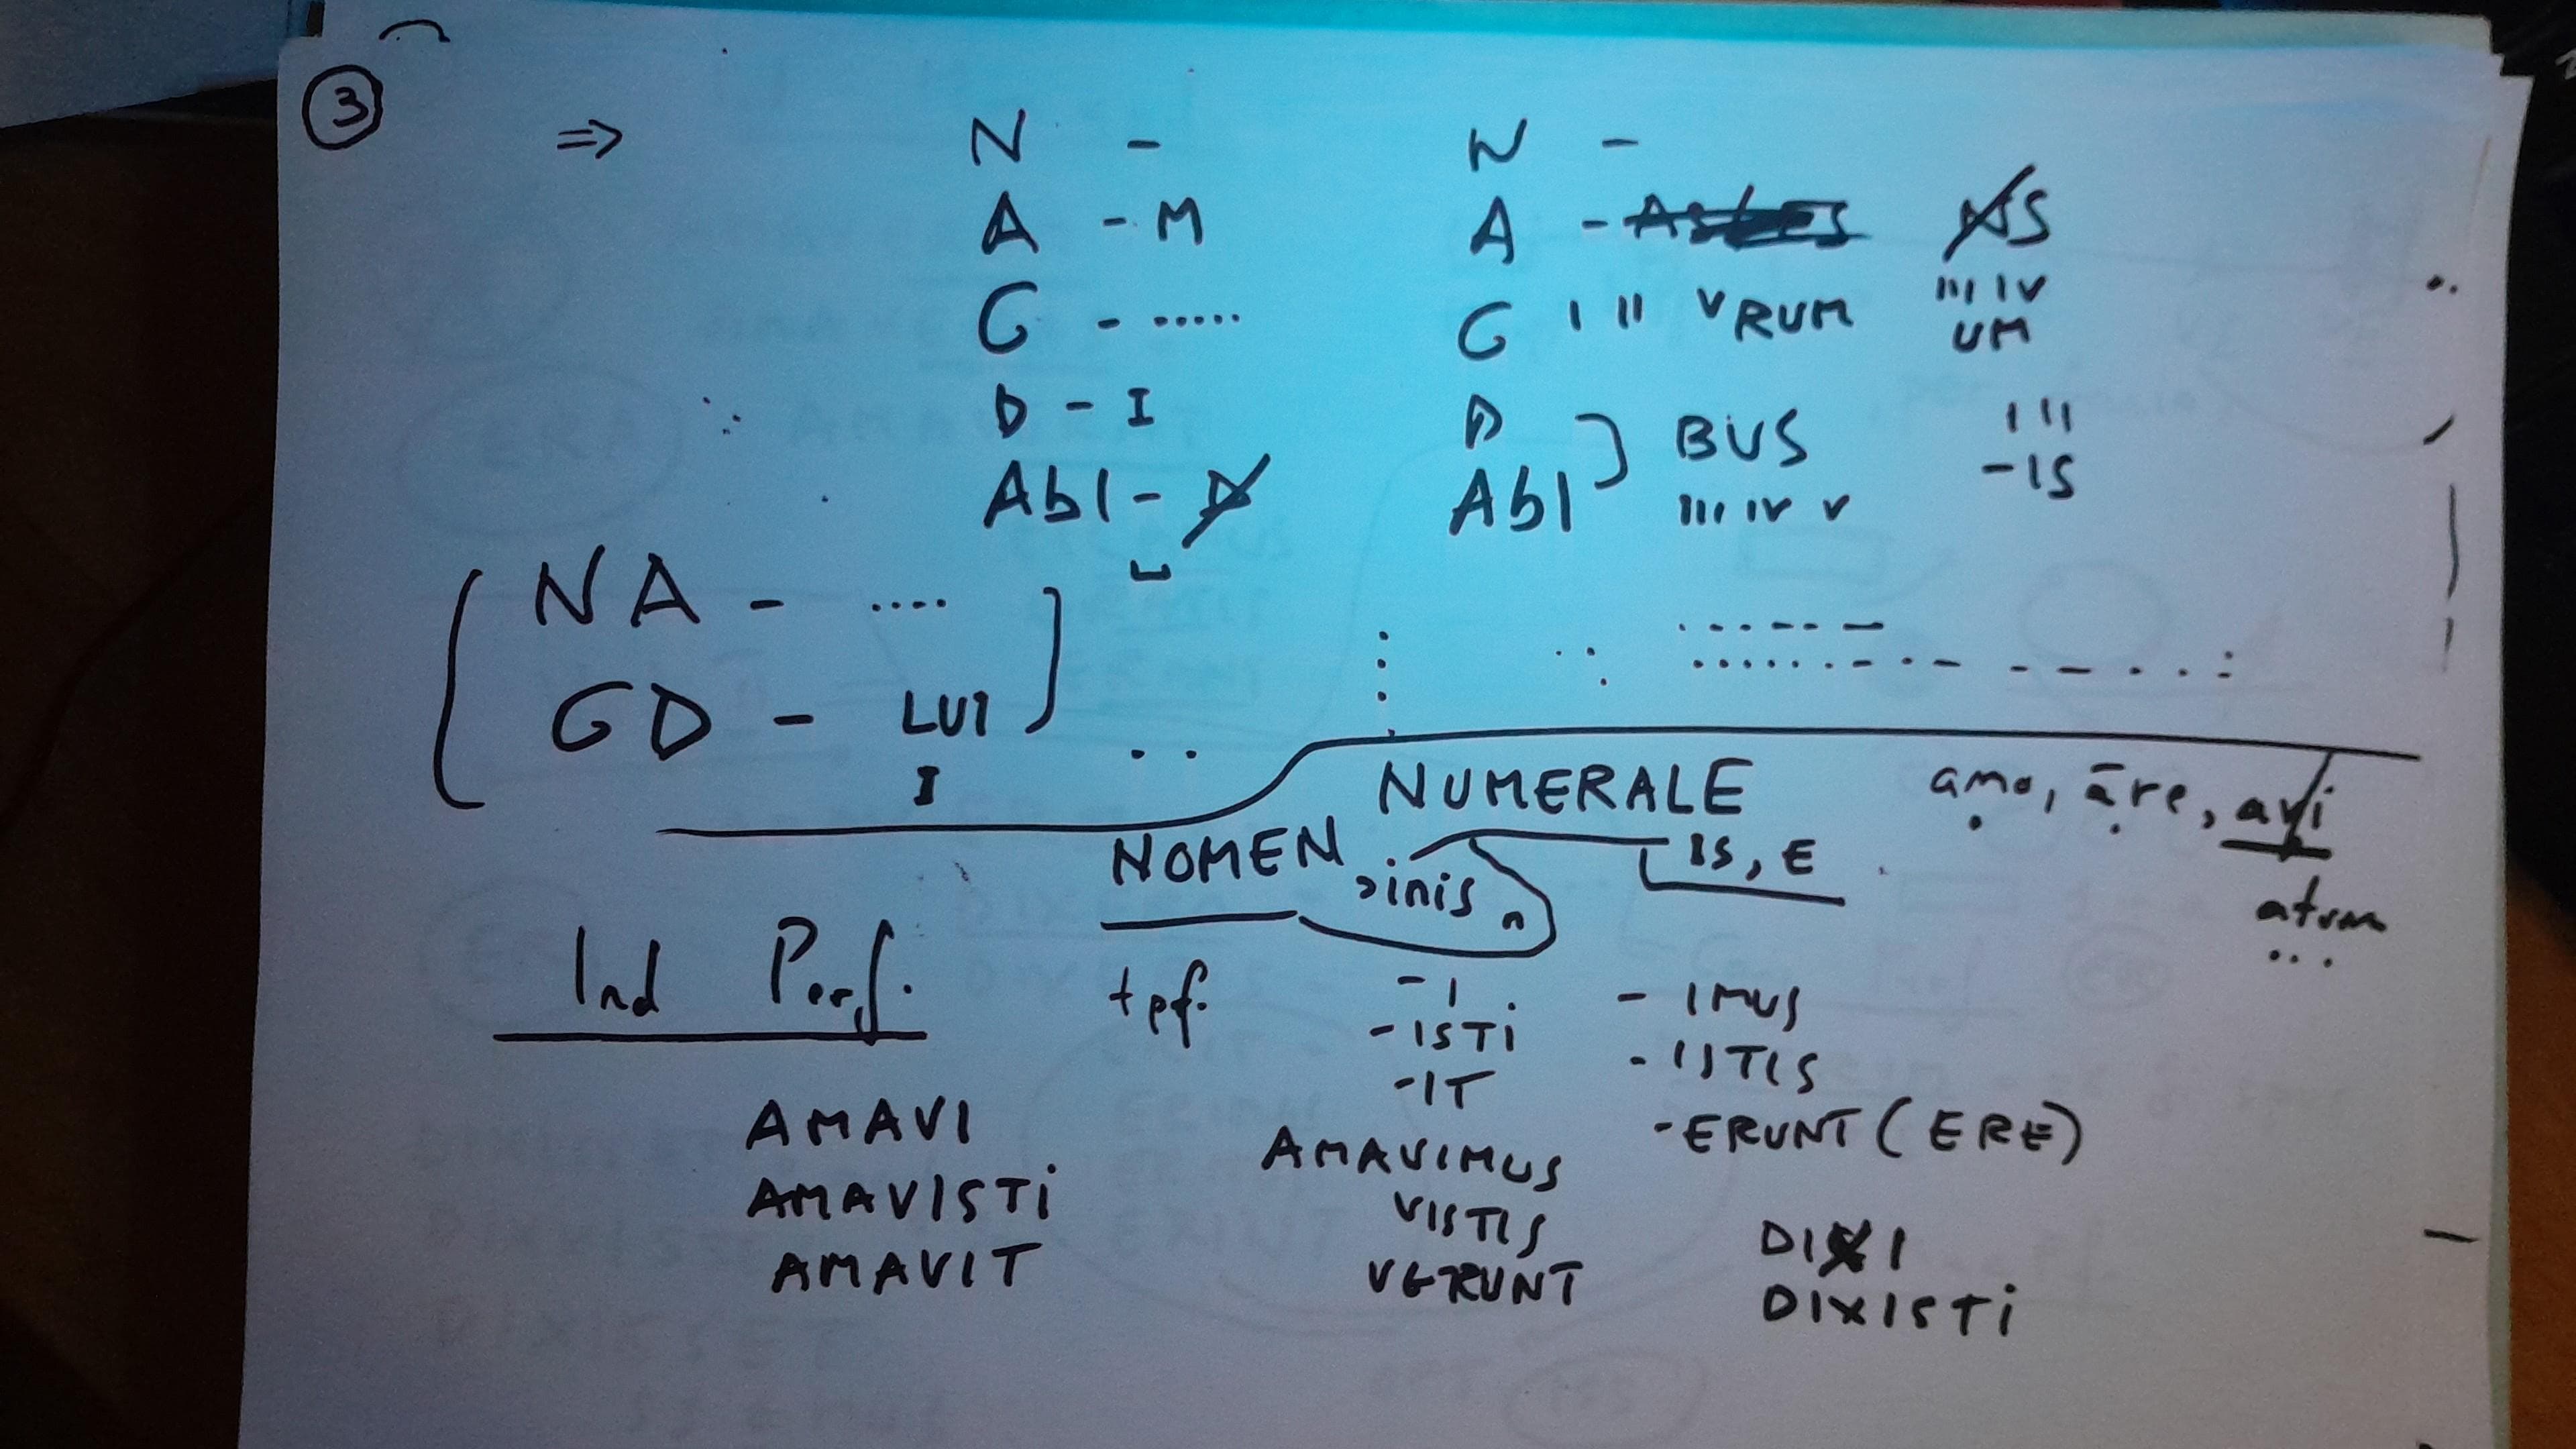 3
⇒ N - N -
A - M A - S
III IV
G - ..... G I II V RUM UM
D - I D BUS I II
Abl - Abl III IV V - IS
NA - ....
GD - LUI
I
NUMERALE amo, āre, avi
NOMEN, inis, n IS, E
atum
...
Ind Perf. + pf. - I - IMUS
- ISTI - ISTIS
- IT - ERUNT (ERE)
AMAVI AMAVIMUS
AMAVISTI VISTIS DIXI
AMAVIT VERUNT DIXISTI